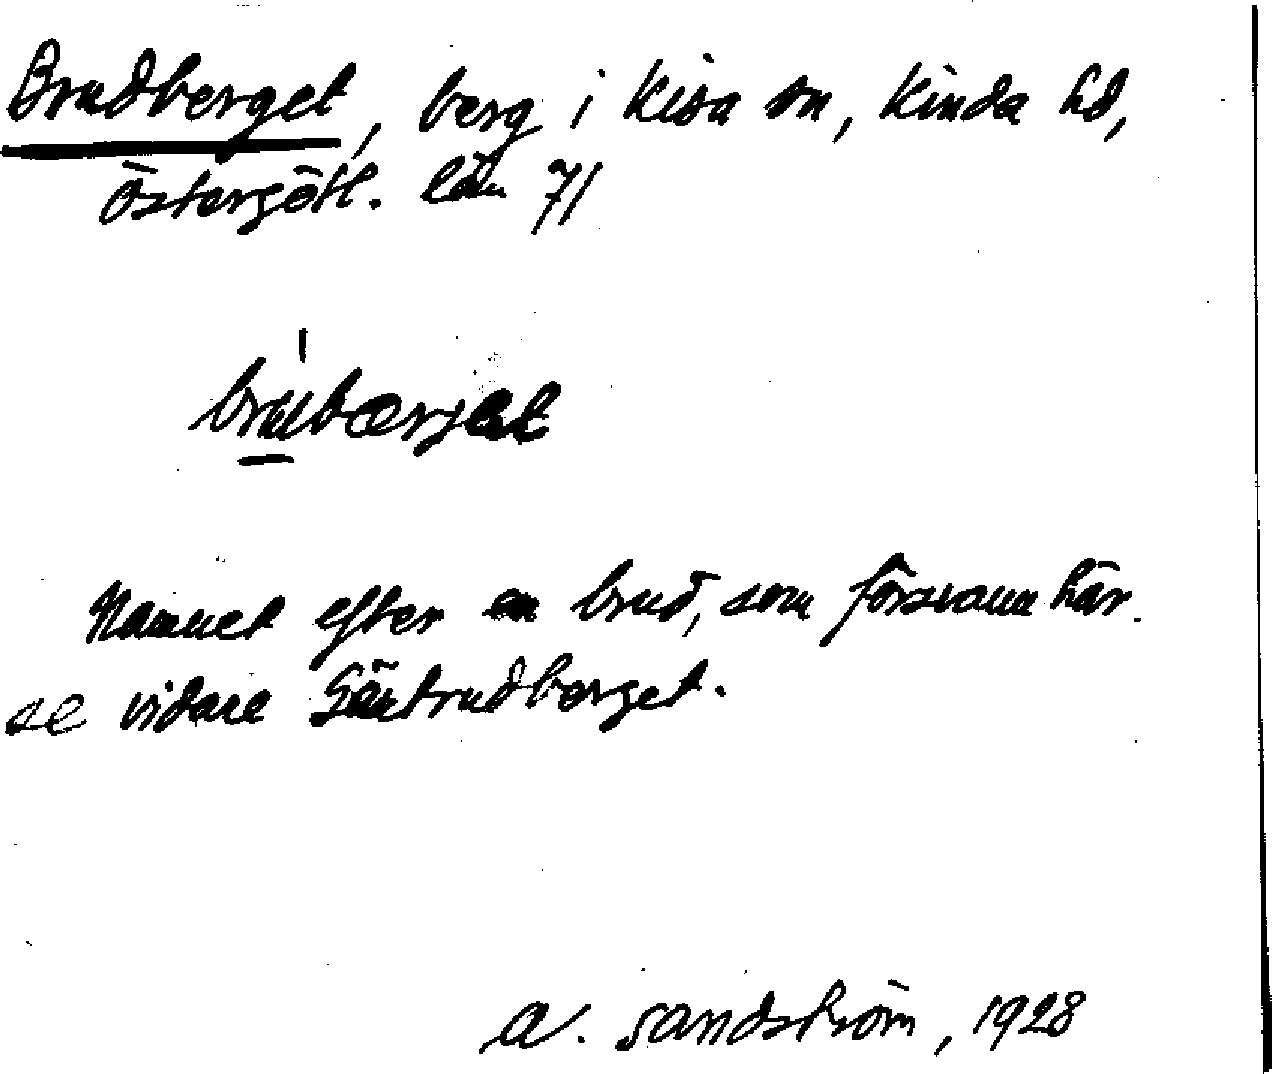 Brudberget, berg i Kisa sn, Kinda hd,
Östergötl. län 71
brubærjet
Namnet efter en brud, som försvann här.
se vidare Gärtrudberget.
A. Sandström, 1928